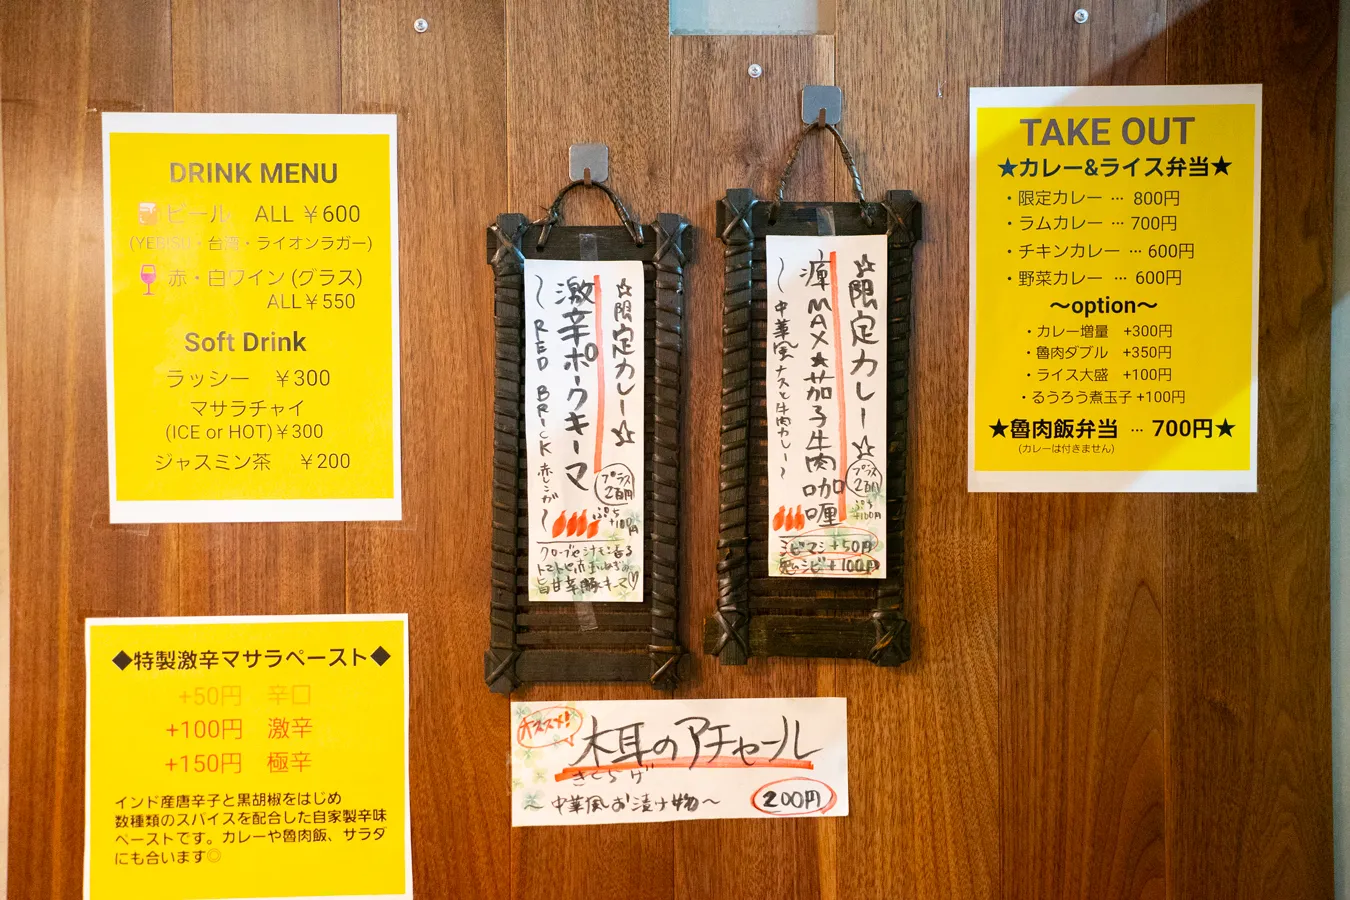 DRINK MENU
ビール ALL ￥600
(YEBISU・台湾・ライオンラガー)
赤・白ワイン (グラス)
ALL￥550
Soft Drink
ラッシー ￥300
マサラチャイ
(ICE or HOT)￥300
ジャスミン茶 ￥200
◆特製激辛マサラペースト◆
+50円 辛口
+100円 激辛
+150円 極辛
インド産唐辛子と黒胡椒をはじめ
数種類のスパイスを配合した自家製辛味
ペーストです。カレーや魯肉飯、サラダ
にも合います◎
☆限定カレー☆
激辛ポークキーマ
〜RED BRICK 赤レンガ〜
プラス
2百円
ぷち
+100円
クローブとシナモン香る
旨甘辛豚キーマ♡
☆限定カレー☆
MAX★茄子牛肉咖喱
〜中華風ナスと牛肉カレー〜
プラス
2百円
ぷち
+100円
シビマシ+50円
シビ+100円
オススメ!
木耳のアチャール
きくらげ
〜中華風お漬け物〜
200円
TAKE OUT
★カレー&ライス弁当★
・限定カレー … 800円
・ラムカレー … 700円
・チキンカレー … 600円
・野菜カレー … 600円
〜option〜
・カレー増量 +300円
・魯肉ダブル +350円
・ライス大盛 +100円
・るうろう煮玉子 +100円
★魯肉飯弁当 … 700円★
(カレーは付きません)